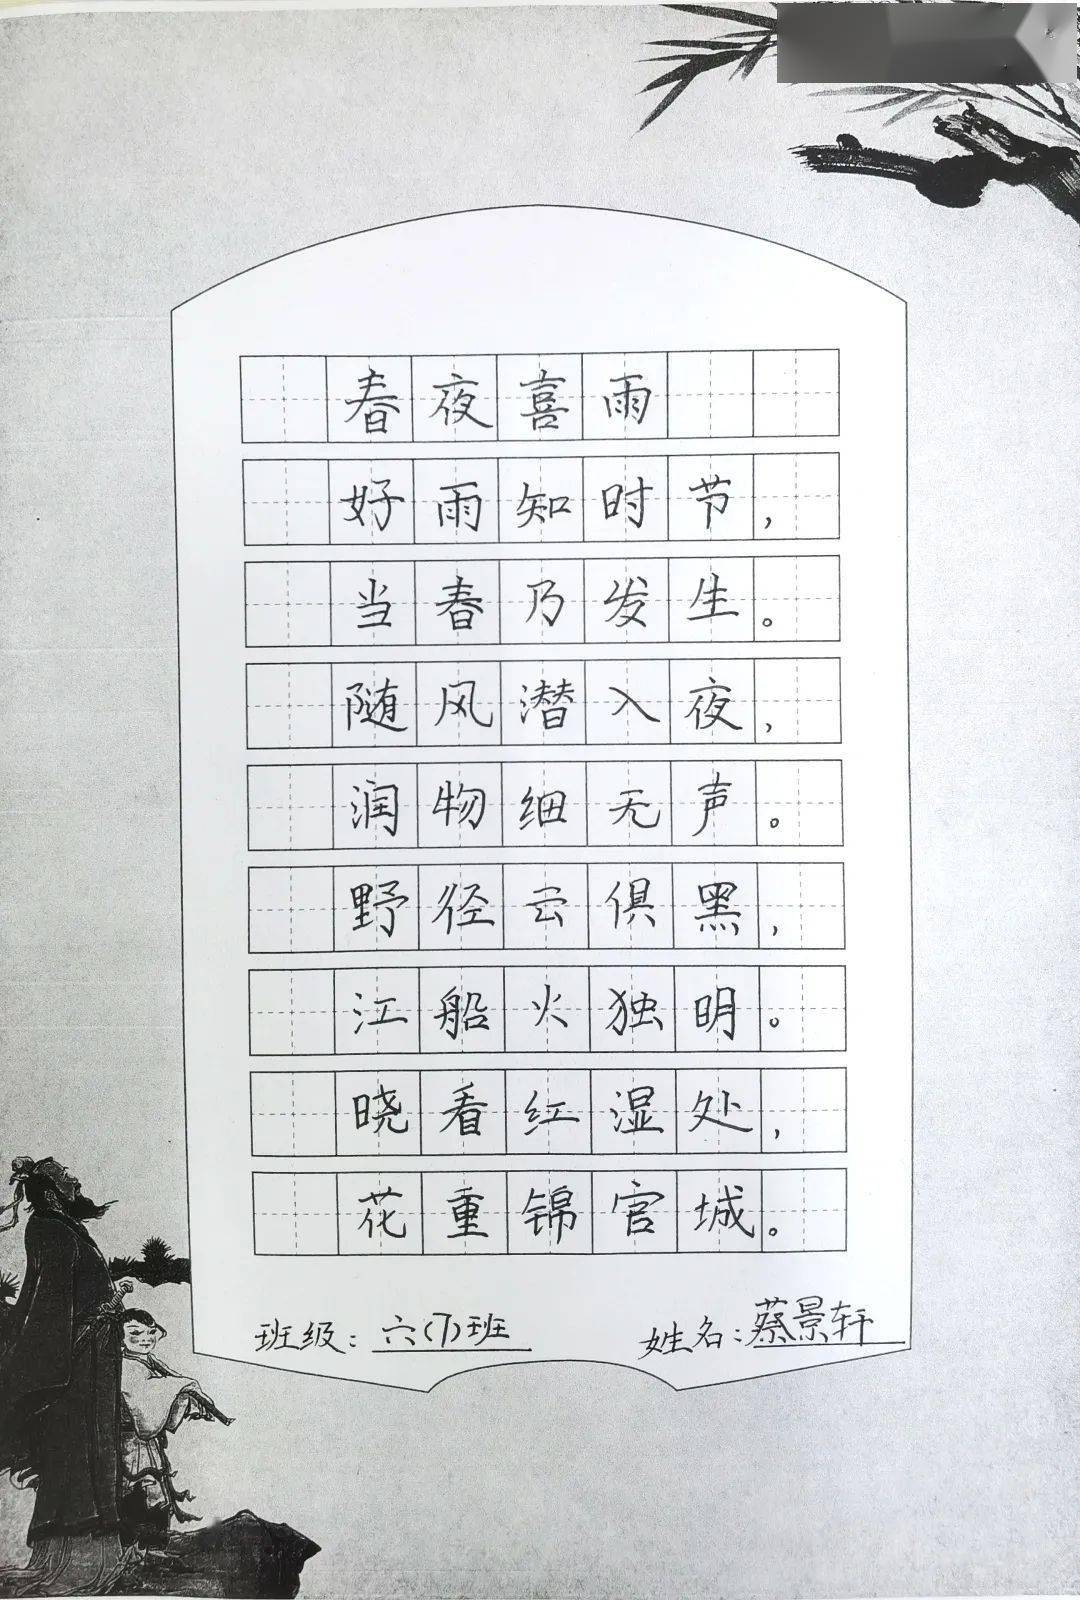 春夜喜雨
好雨知时节，
当春乃发生。
随风潜入夜，
润物细无声。
野径云俱黑，
江船火独明。
晓看红湿处，
花重锦官城。
班级：六(7)班 姓名：蔡景轩